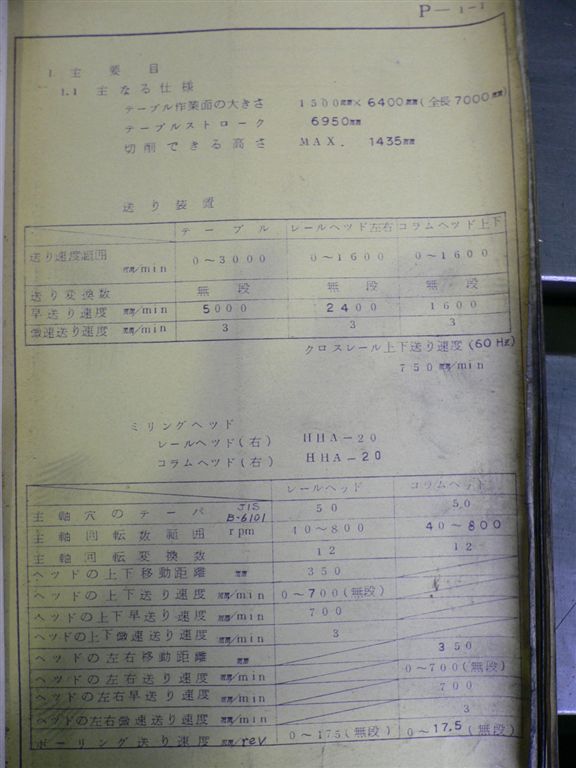 P－1－1
1. 主要目
1.1 主なる仕様
テーブル作業面の大きさ 1500㎜×6400㎜(全長7000㎜)
テーブルストローク 6950㎜
切削できる高さ MAX. 1435㎜
送り装置
テーブル レールヘッド左右 コラムヘッド上下
送り速度範囲 ㎜/min 0～3000 0～1600 0～1600
送り変換数 無段 無段 無段
早送り速度 ㎜/min 5000 2400 1600
微速送り速度 ㎜/min 3 3 3
クロスレール上下送り速度(60Hz)
750㎜/min
ミリングヘッド
レールヘッド(右) HHA－20
コラムヘッド(右) HHA－20
レールヘッド コラムヘッド
主軸穴のテーパ JIS B-6101 50 50
主軸回転数範囲 rpm 40～800 40～800
主軸回転変換数 12 12
ヘッドの上下移動距離 ㎜ 350
ヘッドの上下送り速度 ㎜/min 0～700(無段)
ヘッドの上下早送り速度 ㎜/min 700
ヘッドの上下微速送り速度 ㎜/min 3
ヘッドの左右移動距離 ㎜ 350
ヘッドの左右送り速度 ㎜/min 0～700(無段)
ヘッドの左右早送り速度 ㎜/min 700
ヘッドの左右微速送り速度 ㎜/min 3
ボーリング送り速度 ㎜/rev 0～17.5(無段) 0～17.5(無段)